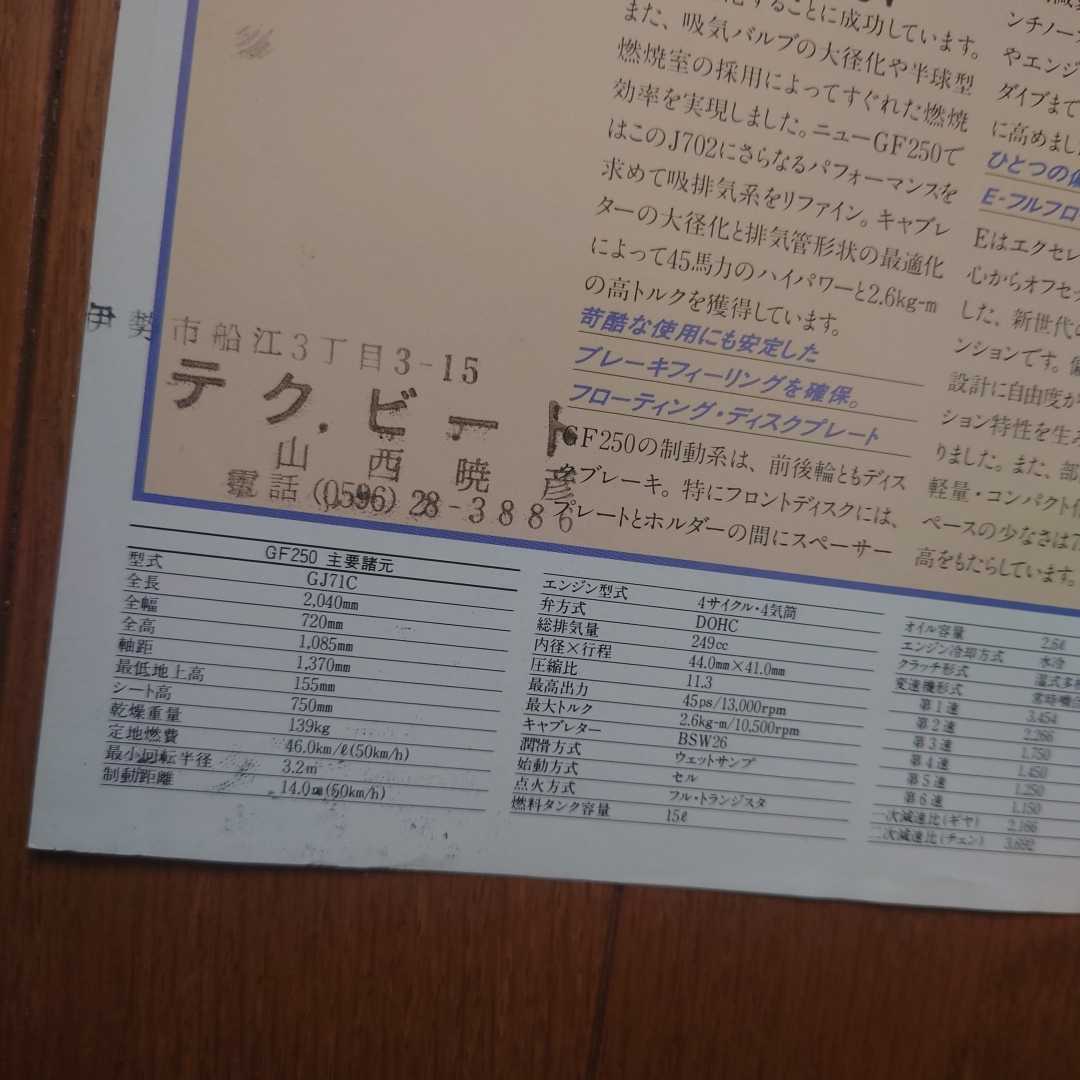 することに成功しています。
また、吸気バルブの大径化や半球型
燃焼室の採用によってすぐれた燃焼
効率を実現しました。ニューGF250で
はこのJ702にさらなるパフォーマンスを
求めて吸排気系をリファイン。キャブレ
ターの大径化と排気管形状の最適化
によって45馬力のハイパワーと2.6kg-m
の高トルクを獲得しています。
苛酷な使用にも安定した
ブレーキフィーリングを確保。
フローティング・ディスクプレート
GF250の制動系は、前後輪ともディス
クブレーキ。特にフロントディスクには、
プレートとホルダーの間にスペーサー
ンチノー
やエンジ
ダイブまで
に高めまし
ひとつの
E-フルフロ
Eはエクセレ
心からオフセ
した、新世代
ンションです。
設計に自由度が
ション特性を生み
りました。また、部
軽量・コンパクト
ペースの少なさは
高をもたらしています。
伊勢市船江3丁目3-15
テク.ビート
山西暁彦
電話(0596)28-3886
GF250 主要諸元
型式 GJ71C
全長 2,040mm
全幅 720mm
全高 1,085mm
軸距 1,370mm
最低地上高 155mm
シート高 750mm
乾燥重量 139kg
定地燃費 46.0km/ℓ(50km/h)
最小回転半径 3.2m
制動距離 14.0m(50km/h)
エンジン型式 4サイクル・4気筒
弁方式 DOHC
総排気量 249cc
内径×行程 44.0mm×41.0mm
圧縮比 11.3
最高出力 45ps/13,000rpm
最大トルク 2.6kg-m/10,500rpm
キャブレター BSW26
潤滑方式 ウェットサンプ
始動方式 セル
点火方式 フル・トランジスタ
燃料タンク容量 15ℓ
オイル容量 2.6ℓ
エンジン冷却方式 水冷
クラッチ形式 湿式多
変速機形式 常時噛
第1速 3.454
第2速 2.266
第3速 1.750
第4速 1.450
第5速 1.250
第6速 1.150
一次減速比(ギヤ) 2.166
二次減速比(チェン) 3.692